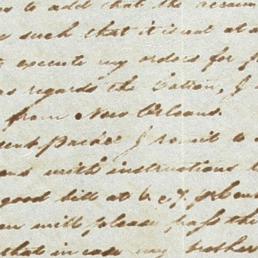 to add that the accoun
such that it is not at a
execute my orders for
as regards the Cotton, I
from New Orleans.
sent Packet I remit to
with instructions t
good bill at
you will please pass the
that in case my brother